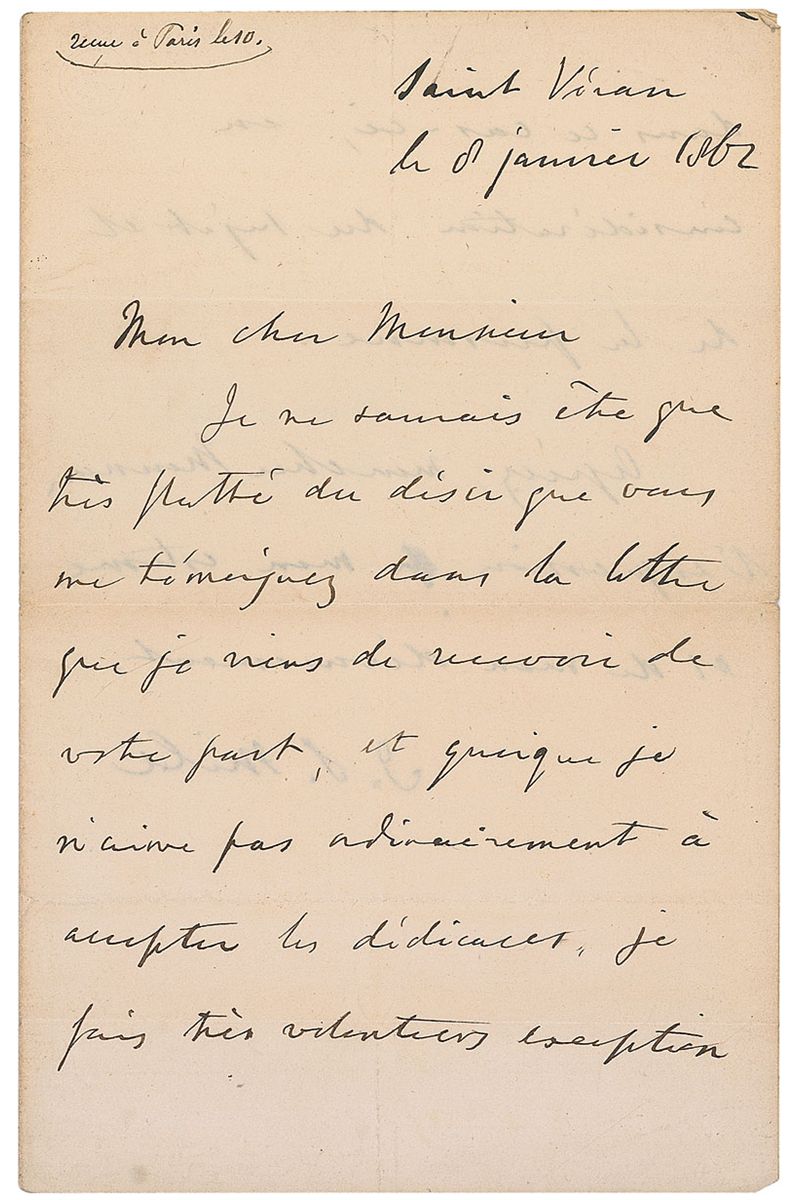 reçue à Paris le 10.
Saint Véran
le 8 janvier 1862
Mon cher Monsieur
Je ne saurais être que
très flatté du désir que vous
me témoignez dans la lettre
que je viens de recevoir de
votre part, et quoique je
n'aime pas ordinairement à
accepter les dédicaces, je
fais très volontiers exception